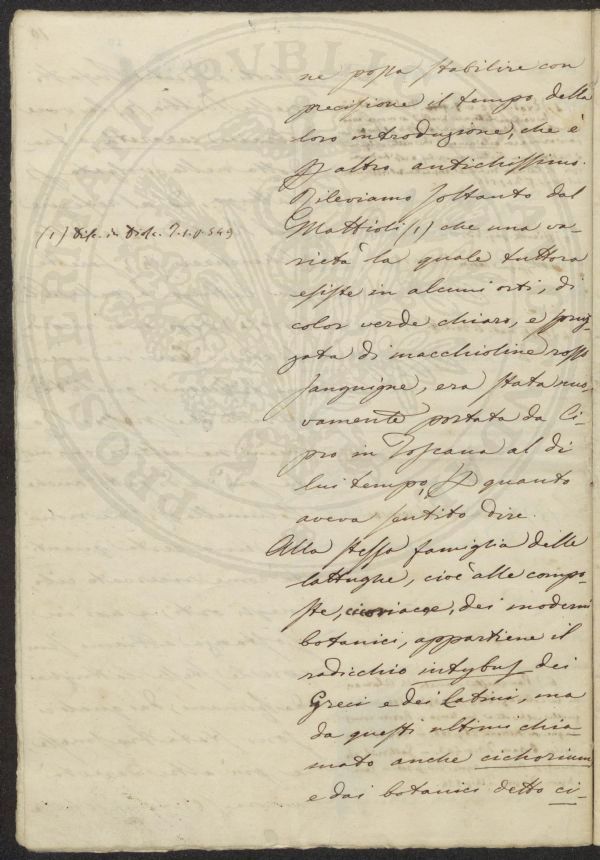 ne possa stabilire con
precisione il tempo della
loro introduzione, che è
altro antichissimo.
Rileviamo soltanto dal
Mattioli (1) che una va-
rietà la quale tuttora
esiste in alcuni orti, di
color verde chiaro, e spruz-
zata di macchioline rosso
sanguigne, era stata nuo-
vamente portata da Ci-
pro in Toscana al di
lui tempo, quanto
aveva sentito dire.
Alla stessa famiglia delle
lattughe, cioè alle compo-
ste, cicoriacee, dei moderni
botanici, appartiene il
radicchio intybus dei
Greci e dei Latini, ma
da questi ultimi chia-
mato anche cichorium
e dai botanici detto ci-
(1)
PROSPERITATI PVBLIC